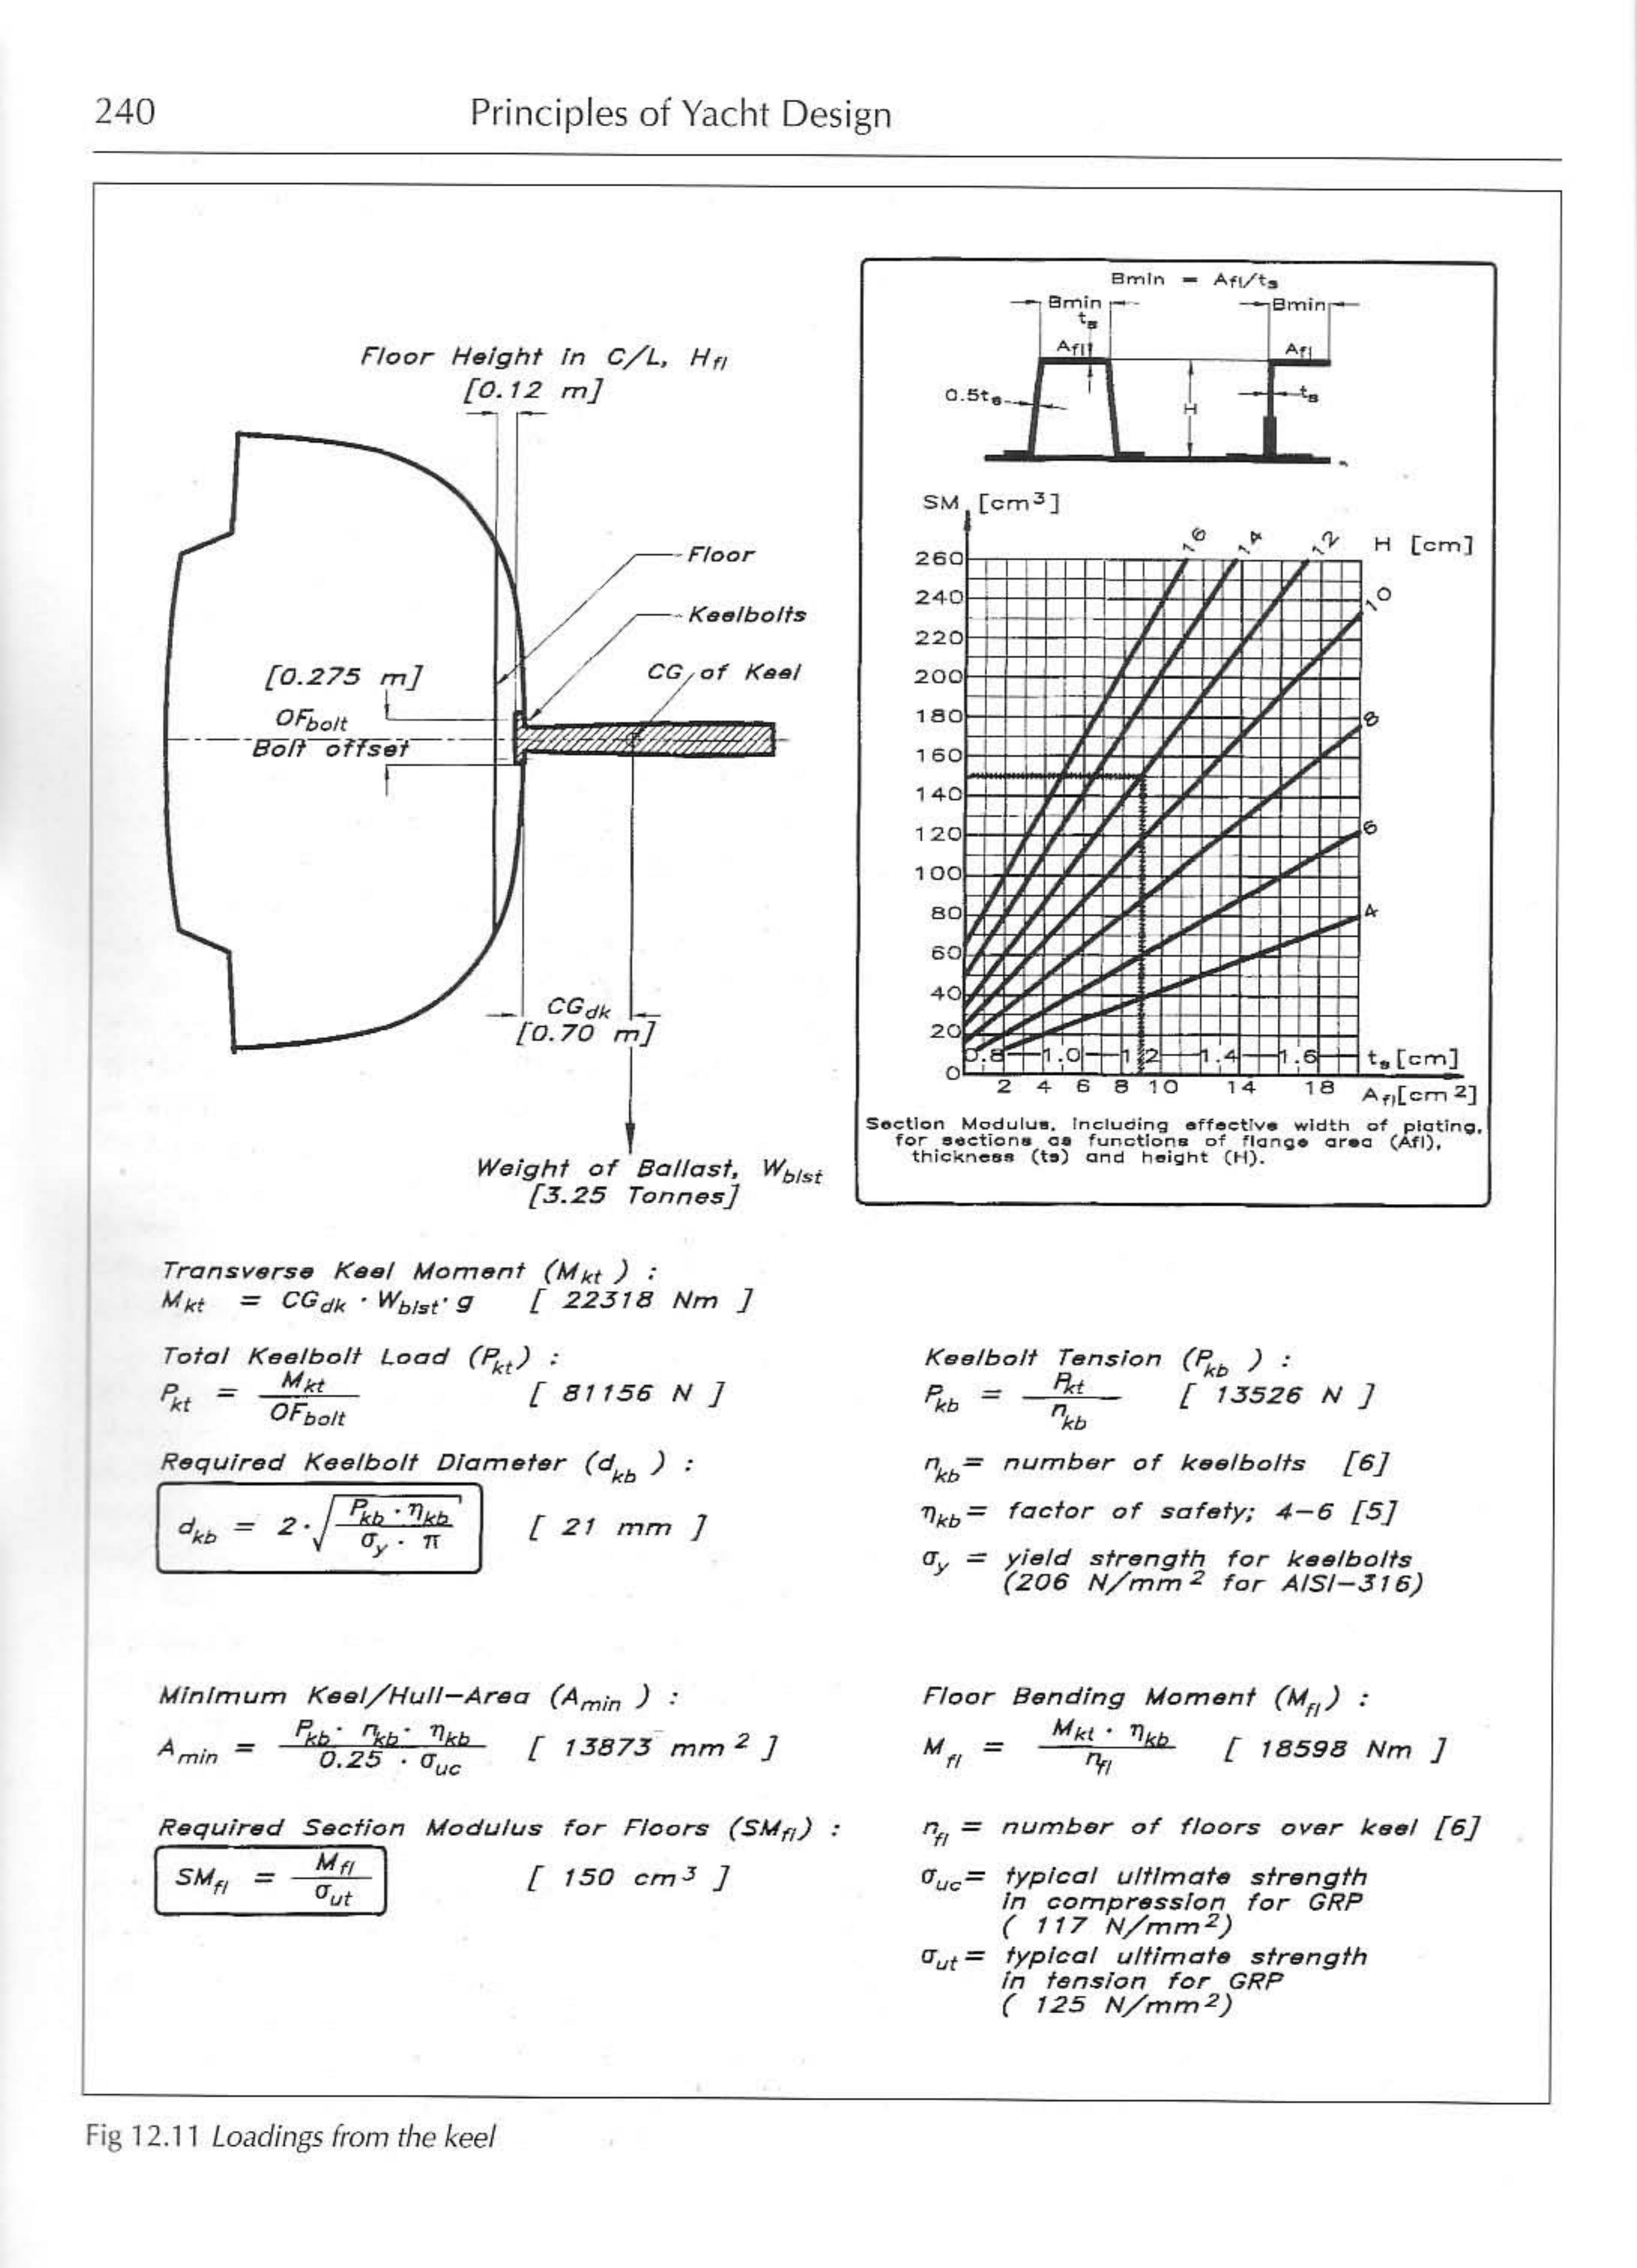 240
Principles of Yacht Design
Floor Height in C/L, Hfl
[0.12 m]
Floor
Keelbolts
CG of Keel
[0.275 m]
OFbolt
Bolt offset
CGdk
[0.70 m]
Weight of Ballast, Wblst
[3.25 Tonnes]
Bmin = Afl/ts
Bmin
Bmin
ts
Afl
Afl
0.5ts
ts
H
SM [cm3]
16 14 12 H [cm]
260
240
10
220
200
180
8
160
140
120
6
100
80
4
60
40
20
0.8 1.0 1.2 1.4 1.6 ts [cm]
0
2 4 6 8 10 14 18 Afl[cm 2]
Section Modulus, including effective width of plating,
for sections as functions of flange area (Afl),
thickness (ts) and height (H).
Transverse Keel Moment (Mkt ) :
Mkt = CGdk · Wblst · g [ 22318 Nm ]
Total Keelbolt Load (Pkt) :
Pkt = Mkt / OFbolt [ 81156 N ]
Keelbolt Tension (Pkb ) :
Pkb = Pkt / nkb [ 13526 N ]
Required Keelbolt Diameter (dkb ) :
dkb = 2 · √ Pkb · ηkb / σy · π [ 21 mm ]
nkb = number of keelbolts [6]
ηkb = factor of safety; 4-6 [5]
σy = yield strength for keelbolts
(206 N/mm 2 for AISI-316)
Minimum Keel/Hull-Area (Amin ) :
Amin = Pkb · nkb · ηkb / 0.25 · σuc [ 13873 mm 2 ]
Floor Bending Moment (Mfl) :
Mfl = Mkt · ηkb / nfl [ 18598 Nm ]
Required Section Modulus for Floors (SMfl) :
SMfl = Mfl / σut [ 150 cm3 ]
nfl = number of floors over keel [6]
σuc = typical ultimate strength
in compression for GRP
( 117 N/mm2)
σut = typical ultimate strength
in tension for GRP
( 125 N/mm2)
Fig 12.11 Loadings from the keel